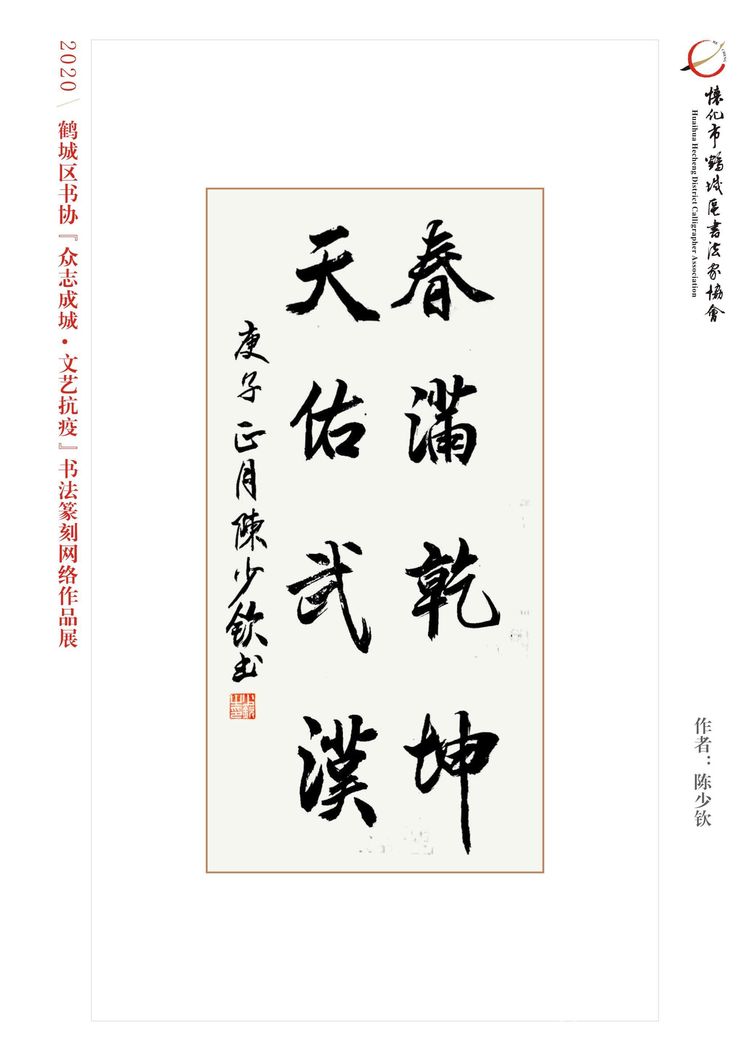 2020
鹤城区书协『众志成城·文艺抗疫』书法篆刻网络作品展
懷化市鶴城區書法家協會
Huaihua Hecheng District Calligrapher Association
春滿乾坤
天佑武漢
庚子正月陳少欽书
作者：陈少钦